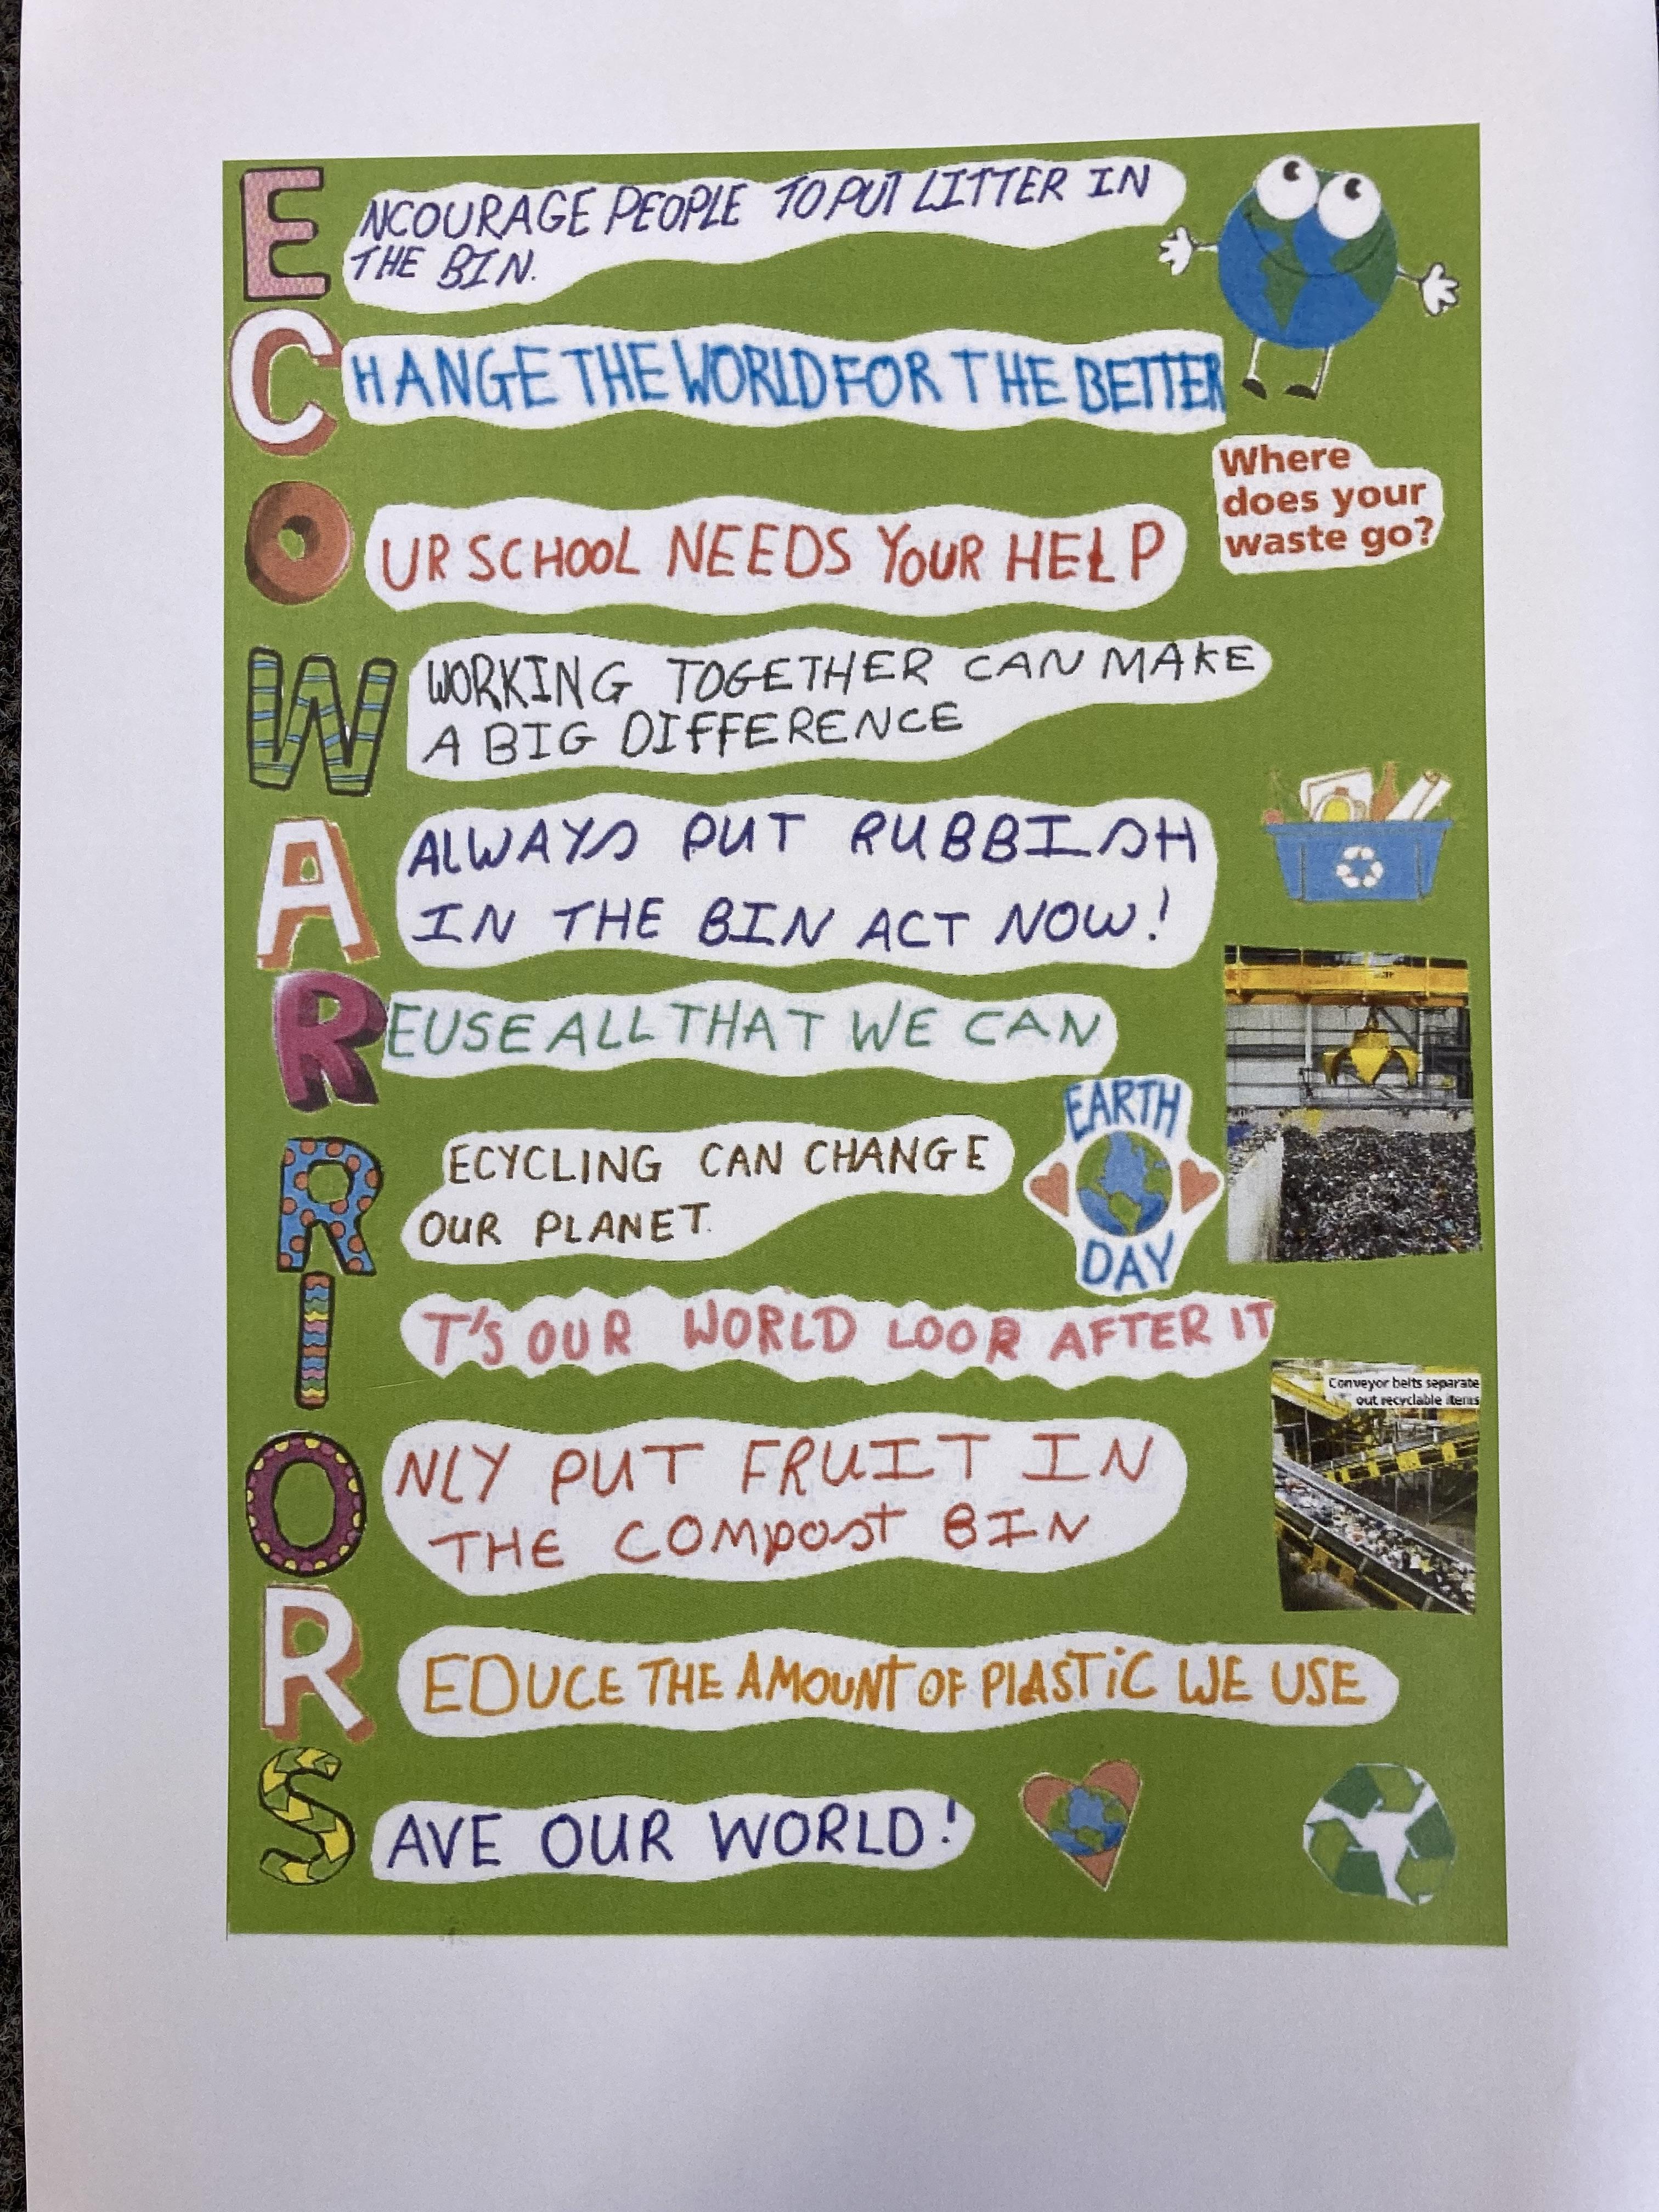 ENCOURAGE PEOPLE TO PUT LITTER IN
THE BIN.
CHANGE THE WORLD FOR THE BETTER
Where
does your
waste go?
OUR SCHOOL NEEDS YOUR HELP
W WORKING TOGETHER CAN MAKE
A BIG DIFFERENCE
A ALWAYS PUT RUBBISH
IN THE BIN ACT NOW!
REUSE ALL THAT WE CAN
EARTH
DAY
RECYCLING CAN CHANGE
OUR PLANET.
IT'S OUR WORLD LOOR AFTER IT
Conveyor belts separate
out recyclable items
ONLY PUT FRUIT IN
THE COMPOST BIN
REDUCE THE AMOUNT OF PLASTIC WE USE
SAVE OUR WORLD!